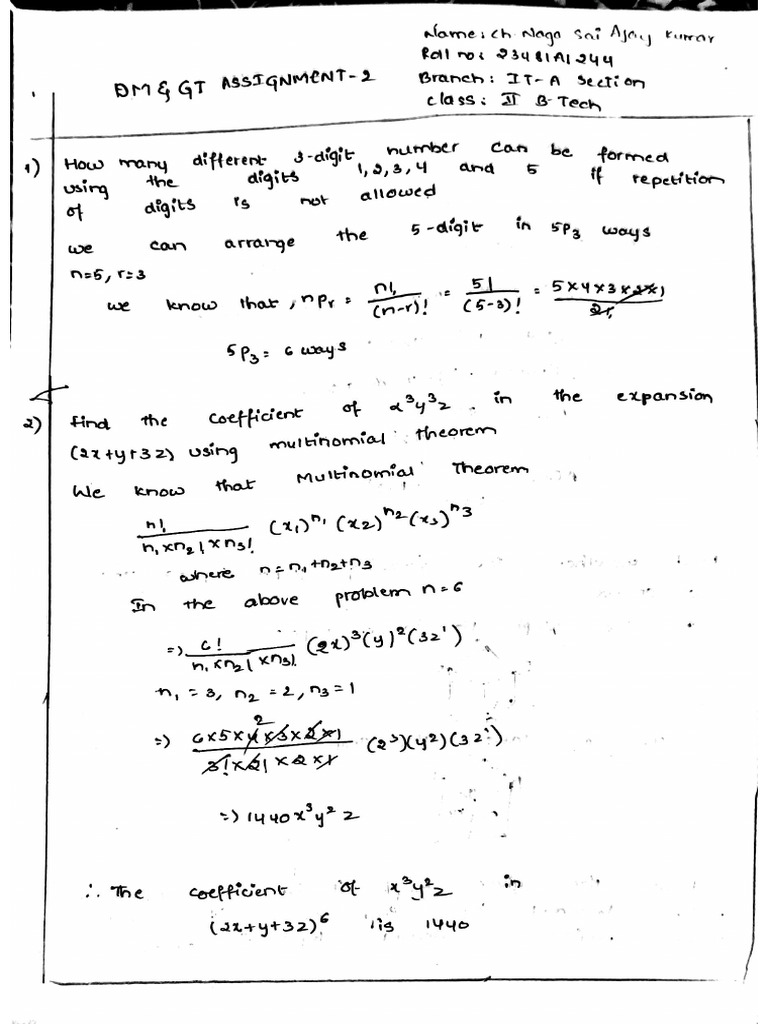 Name: ch Naga Sai Ajay Kumar
Roll no: 23481A1244
DM & GT ASSIGNMENT-2
Branch: IT-A Section
class: II B-Tech
1) How many different 3-digit number can be formed
using the digits 1,2,3,4 and 5 if repetition
of digits is not allowed
we can arrange the 5-digit in 5P3 ways
n=5, r=3
we know that, nPr = n!/(n-r)! = 5!/(5-3)! = 5×4×3×2×1/2!
5P3 = 6 ways
2) find the coefficient of x³y³z in the expansion
(2x+y+3z) using multinomial theorem
We know that Multinomial Theorem
n!/n₁×n₂!×n₃! (x₁)ⁿ¹ (x2)ⁿ² (x3)ⁿ3
where n=n₁+n₂+n₃
In the above problem n=6
=) 6!/n₁×n₂!×n₃! (2x)³(y)²(3z¹)
n₁ = 3, n₂ = 2, n₃ = 1
=) 6×5×4×3×2×1/3!×2!×2×1 (2³)(y²)(3z¹)
2
=) 1440x³y²z
∴ The coefficient of x³y²z in
(2x+y+3z)⁶ is 1440